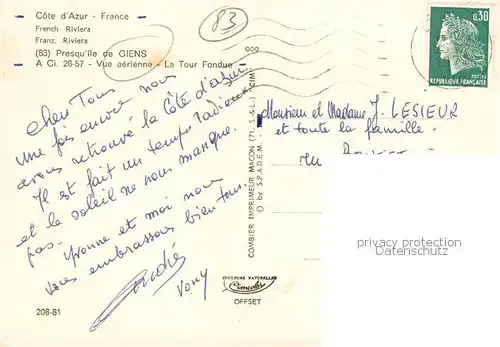 Côte d'Azur - France
French Riviera
Franz. Riviera
(83) Presqu'île de GIENS
A Ci. 26-57 - Vue aérienne - La Tour Fondue
83
0,30
POSTES
REPUBLIQUE FRANÇAISE
Chers Tous
Une fois encore nous
avons retrouvé la Côte d'azur.
Il est fait un temps radieux
et le soleil ne nous manque
pas.
Yvonne et moi nous
vous embrassons bien tous
André
Vony
208-81
COMBIER IMPRIMEUR MACON (71. S.&L.) CIM
© by S.P.A.D.E.M.
COULEURS NATURELLES
Cimcolor
OFFSET
Monsieur et Madame J. LESIEUR
et toute la famille
privacy protection
Datenschutz